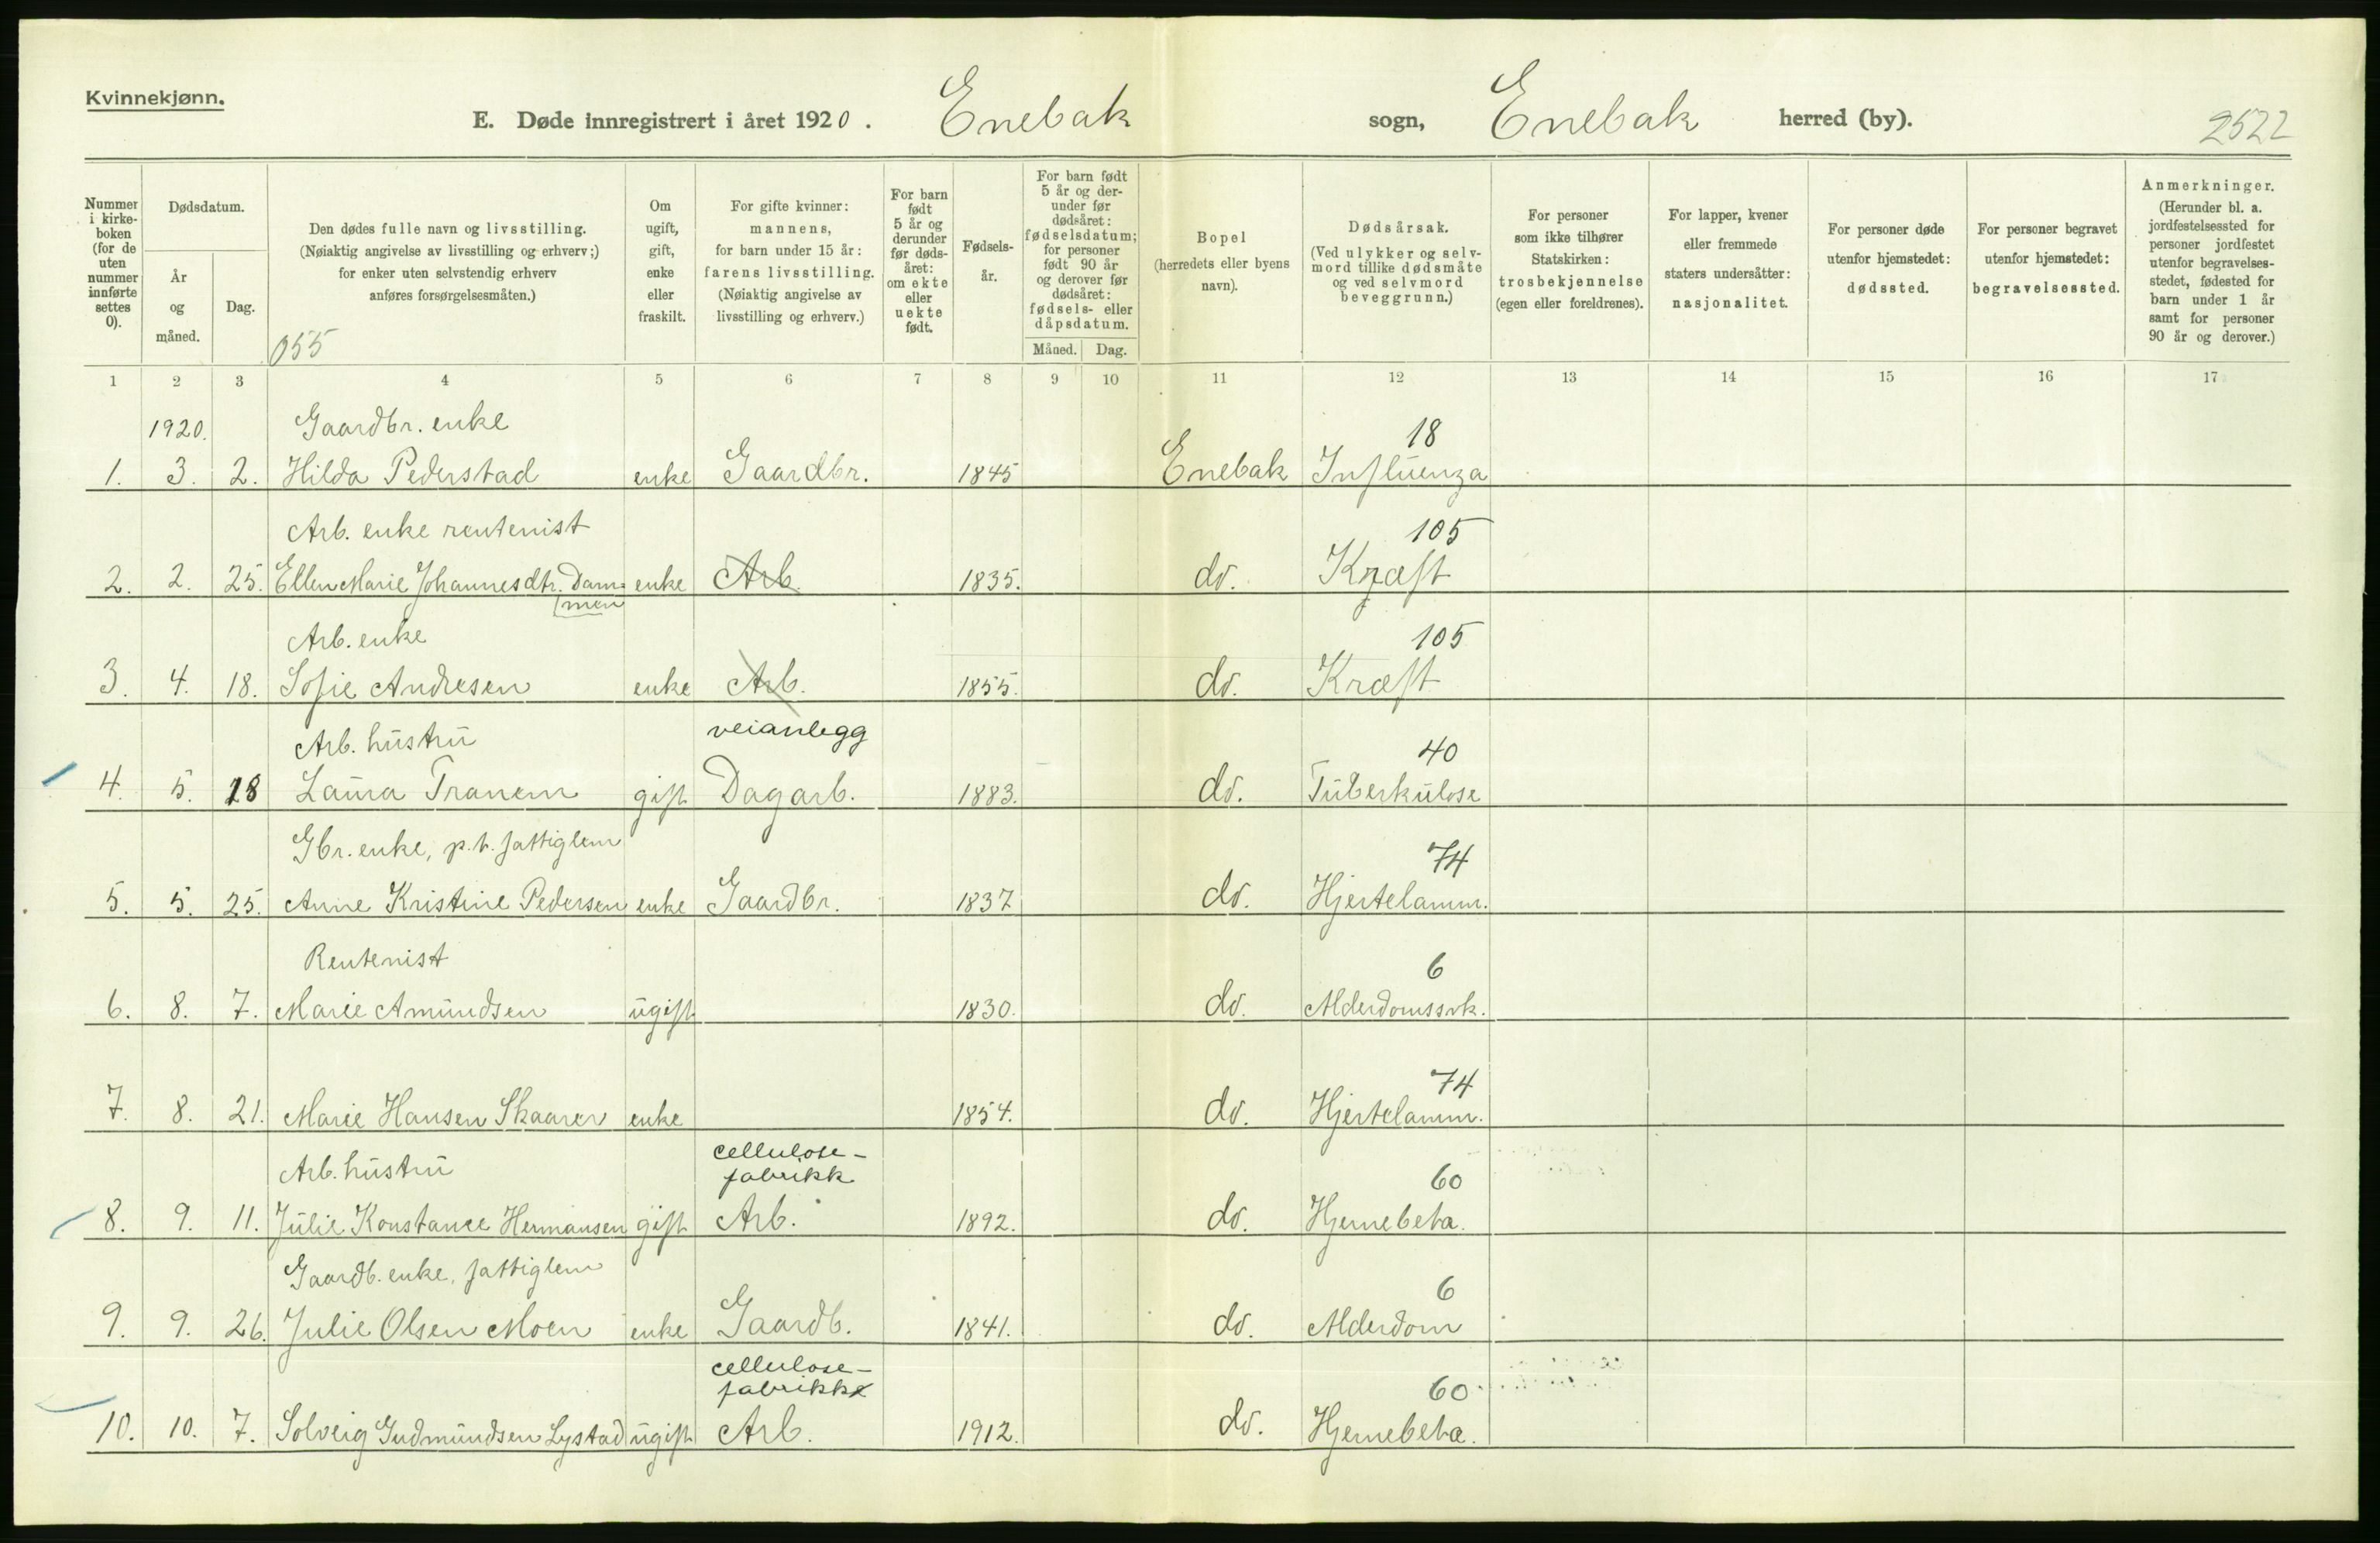 Kvinnekjønn.
E. Døde innregistrert i året 1920. Enebak sogn, Enebak herred (by). 2522
Nummer i kirke-boken (for de uten nummer innførte settes 0).
Dødsdatum.
År og måned.
Dag.
Den dødes fulle navn og livsstilling.
(Nøiaktig angivelse av livsstilling og erhverv;)
for enker uten selvstendig erhverv
anføres forsørgelsesmåten.)
055
Om ugift, gift, enke eller fraskilt.
For gifte kvinner:
mannens,
for barn under 15 år:
farens livsstilling.
(Nøiaktig angivelse av
livsstilling og erhverv.)
For barn født 5 år og derunder før døds-året: om ekte eller uekte født.
Fødsels-år.
For barn født 5 år og der-under før dødsåret: fødselsdatum; for personer født 90 år og derover før dødsåret: fødsels- eller dåpsdatum.
Måned. Dag.
Bopel
(herredets eller byens
navn).
Dødsårsak.
(Ved ulykker og selv-
mord tillike dødsmåte
og ved selvmord
beveggrunn.)
For personer
som ikke tilhører
Statskirken:
trosbekjennelse
(egen eller foreldrenes).
For lapper, kvener
eller fremmede
staters undersåtter:
nasjonalitet.
For personer døde
utenfor hjemstedet:
dødssted.
For personer begravet
utenfor hjemstedet:
begravelsessted.
Anmerkninger.
(Herunder bl. a.
jordfestelsessted for
personer jordfestet
utenfor begravelses-
stedet, fødested for
barn under 1 år
samt for personer
90 år og derover.)
1 2 3 4 5 6 7 8 9 10 11 12 13 14 15 16 17
1920. Gaardbr. enke 18
1. 3. 2. Hilda Pederstad enke Gaardbr. 1845 Enebak Influenza
Arb. enke rentenist 105
2. 2. 25. Ellen Marie Johannesdtr. Dam- enke Arb. 1835. do. Kræft
men
Arb. enke 105
3. 4. 18. Sofie Andresen enke Arb. 1855. do. Kræft
Arb. hustru veianlegg 40
4. 5. 18 Laura Tranem gift Dagarb. 1883. do. Tuberkulose
Gbr. enke, p.t. fattiglem 74
5. 5. 25. Anne Kristine Pedersen enke Gaardbr. 1837 do. Hjertelamm.
Rentenist 6
6. 8. 7. Marie Amundsen ugift 1830. do. Alderdomssvk.
74
7. 8. 21. Marie Hansen Skaarer enke 1854. do. Hjertelamm.
cellulose-
Arb. hustru fabrikk 60
8. 9. 11. Julie Konstance Hermansen gift Arb. 1892. do. Hjernebeta.
Gaardb. enke, fattiglem 6
9. 9. 26. Julie Olsen Moen enke Gaardb. 1841. do. Alderdom
cellulose-
fabrikk 60
10. 10. 7. Solveig Gudmundsen Lystad ugift Arb. 1912. do. Hjernebeta.